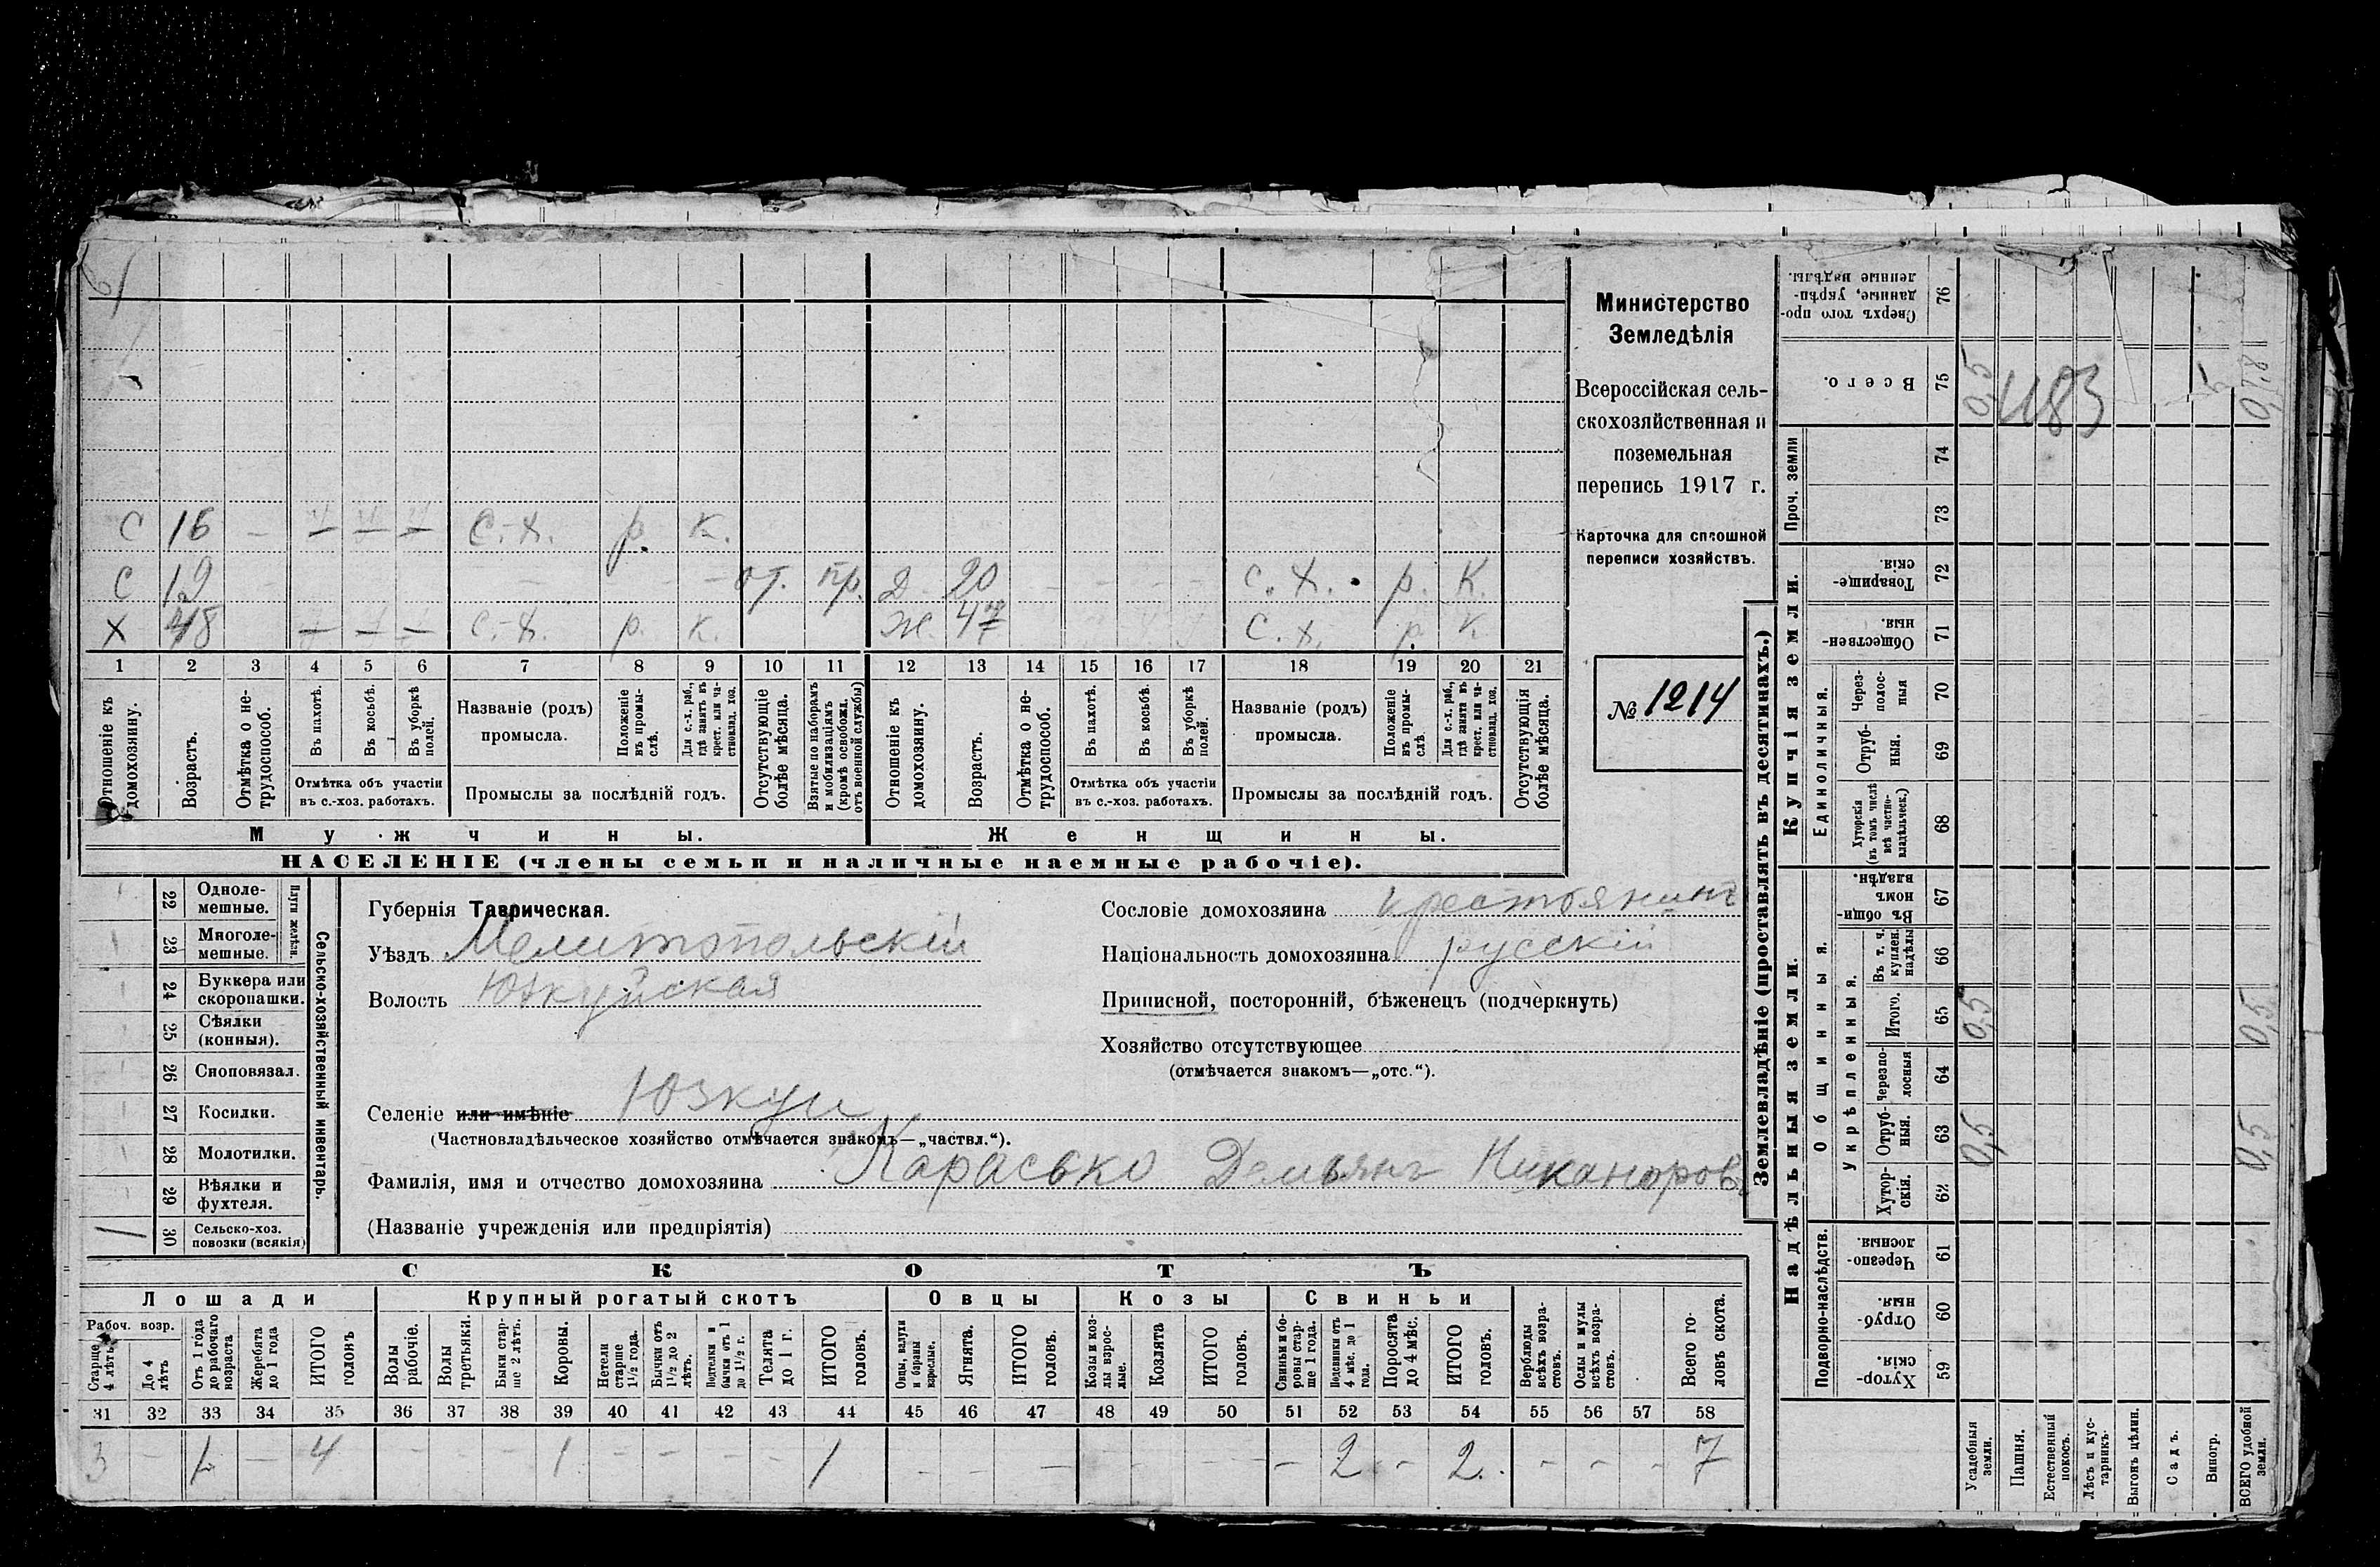 С 16 — — — — С.-х. р. к.
С 19 от. пр. Д. 20 с.х. р. к.
Х 48 — — — с.-х. р. к. Ж. 47 с.х. р. к.
1 2 3 4 5 6 7 8 9 10 11 12 13 14 15 16 17 18 19 20 21
Отношеніе къ домохозяину.
Возрастъ.
Отмѣтка о не-трудоспособ.
Въ пахотѣ.
Въ косьбѣ.
Въ уборкѣ полей.
Отмѣтка объ участіи въ с.-хоз. работахъ.
Названіе (родъ) промысла.
Положеніе въ промы-слѣ.
Для с.-х. раб., гдѣ занятъ въ крест. или ча-стновлад. хоз.
Промыслы за послѣдній годъ.
Отсутствующіе болѣе мѣсяца.
Взятые по наборамъ и мобилизаціямъ (кромѣ освобожд. отъ военной службы)
Отношеніе къ домохозяину.
Возрастъ.
Отмѣтка о не-трудоспособ.
Въ пахотѣ.
Въ косьбѣ.
Въ уборкѣ полей.
Отмѣтка объ участіи въ с.-хоз. работахъ.
Названіе (родъ) промысла.
Положеніе въ промы-слѣ.
Для с.-х. раб., гдѣ занята въ крест. или ча-стновлад. хоз.
Промыслы за послѣдній годъ.
Отсутствующія болѣе мѣсяца.
Мужчины.
Женщины.
НАСЕЛЕНІЕ (члены семьи и наличные наемные рабочіе).
Министерство
Земледѣлія
Всероссійская сель-
скохозяйственная и
поземельная
перепись 1917 г.
Карточка для сплошной
переписи хозяйствъ.
№ 1214
22 Одноле-мешные.
23 Многоле-мешные.
Плуги желѣзн.
24 Буккера или скоропашки.
25 Сѣялки (конныя).
26 Сноповязал.
27 Косилки.
28 Молотилки.
29 Вѣялки и фухтеля.
1 30 Сельско-хоз. повозки (всякія)
Сельско-хозяйственный инвентарь.
Губернія Таврическая.
Уѣздъ Мелитопольскій
Волость Юзкуйская
Селеніе или имѣніе Юзкуи
(Частновладѣльческое хозяйство отмѣчается знакомъ—„частвл.“).
Фамилія, имя и отчество домохозяина Карасько Демьянъ Никаноров.
(Названіе учрежденія или предпріятія)
Сословіе домохозяина крестьянинъ
Національность домохозяина русскій
Приписной, посторонній, бѣженецъ (подчеркнуть)
Хозяйство отсутствующее
(отмѣчается знакомъ—„отс.“).
СКОТЪ
Лошади Крупный рогатый скотъ Овцы Козы Свиньи
Рабоч. возр.
Старше 4 лѣтъ
До 4 лѣтъ
Отъ 1 года до рабочаго возраста
Жеребята до 1 года
ИТОГО головъ
Волы рабочіе.
Волы третьяки.
Быки стар-ше 2 лѣтъ.
Коровы.
Нетели старше 1½ года.
Бычки отъ 1½ до 2 лѣтъ.
Подтелки и бычки отъ 1 до 1½ г.
Телята до 1 г.
ИТОГО головъ.
Овцы, валухи и бараны взрослые.
Ягнята.
ИТОГО головъ.
Козы и коз-лы взрос-лые.
Козлята
ИТОГО головъ.
Свиньи и бо-ровы стар-ше 1 года.
Подсвинки отъ 4 мѣс. до 1 года.
Поросята до 4 мѣс.
ИТОГО головъ.
Верблюды всѣхъ возра-стовъ.
Ослы и мулы всѣхъ возра-стовъ.
Всего го-ловъ скота.
31 32 33 34 35 36 37 38 39 40 41 42 43 44 45 46 47 48 49 50 51 52 53 54 55 56 57 58
3 — 1 — 4 — — — 1 — — — — 1 — — — — — — — 2 — 2. — — — 7
Землевладѣніе (проставлять въ десятинахъ.)
Купчія земли.
Надѣльныя земли.
Сверхъ того про-данные, укрѣп-ленные надѣлы. 76
Всего. 75 0,5 1183
Проч. земли 74 73
Товарище-скія. 72
Обществен-ныя. 71
Единоличныя.
Через-полос-ныя 70
Отруб-ныя. 69
Хуторскія (въ томъ числѣ всѣ частно-владѣльческ.) 68
Общинныя.
Въ общи-номъ владѣн. 67
Укрѣпленныя.
Въ т. ч. куплен. надѣлы 66
Итого. 65 0,5 0,5
Черезпо-лосныя 64
Отруб-ныя. 63 0,5 0,5
Хутор-скія. 62
Подворно-наслѣдств.
Черезпо-лосныя. 61
Отруб-ныя. 60
Хутор-скія. 59
Усадебныя земли.
Пашня.
Естественный покосъ.
Лѣсъ и кус-тарникъ.
Выгонъ цѣлин.
Садъ.
Виногр.
ВСЕГО удобной земли.